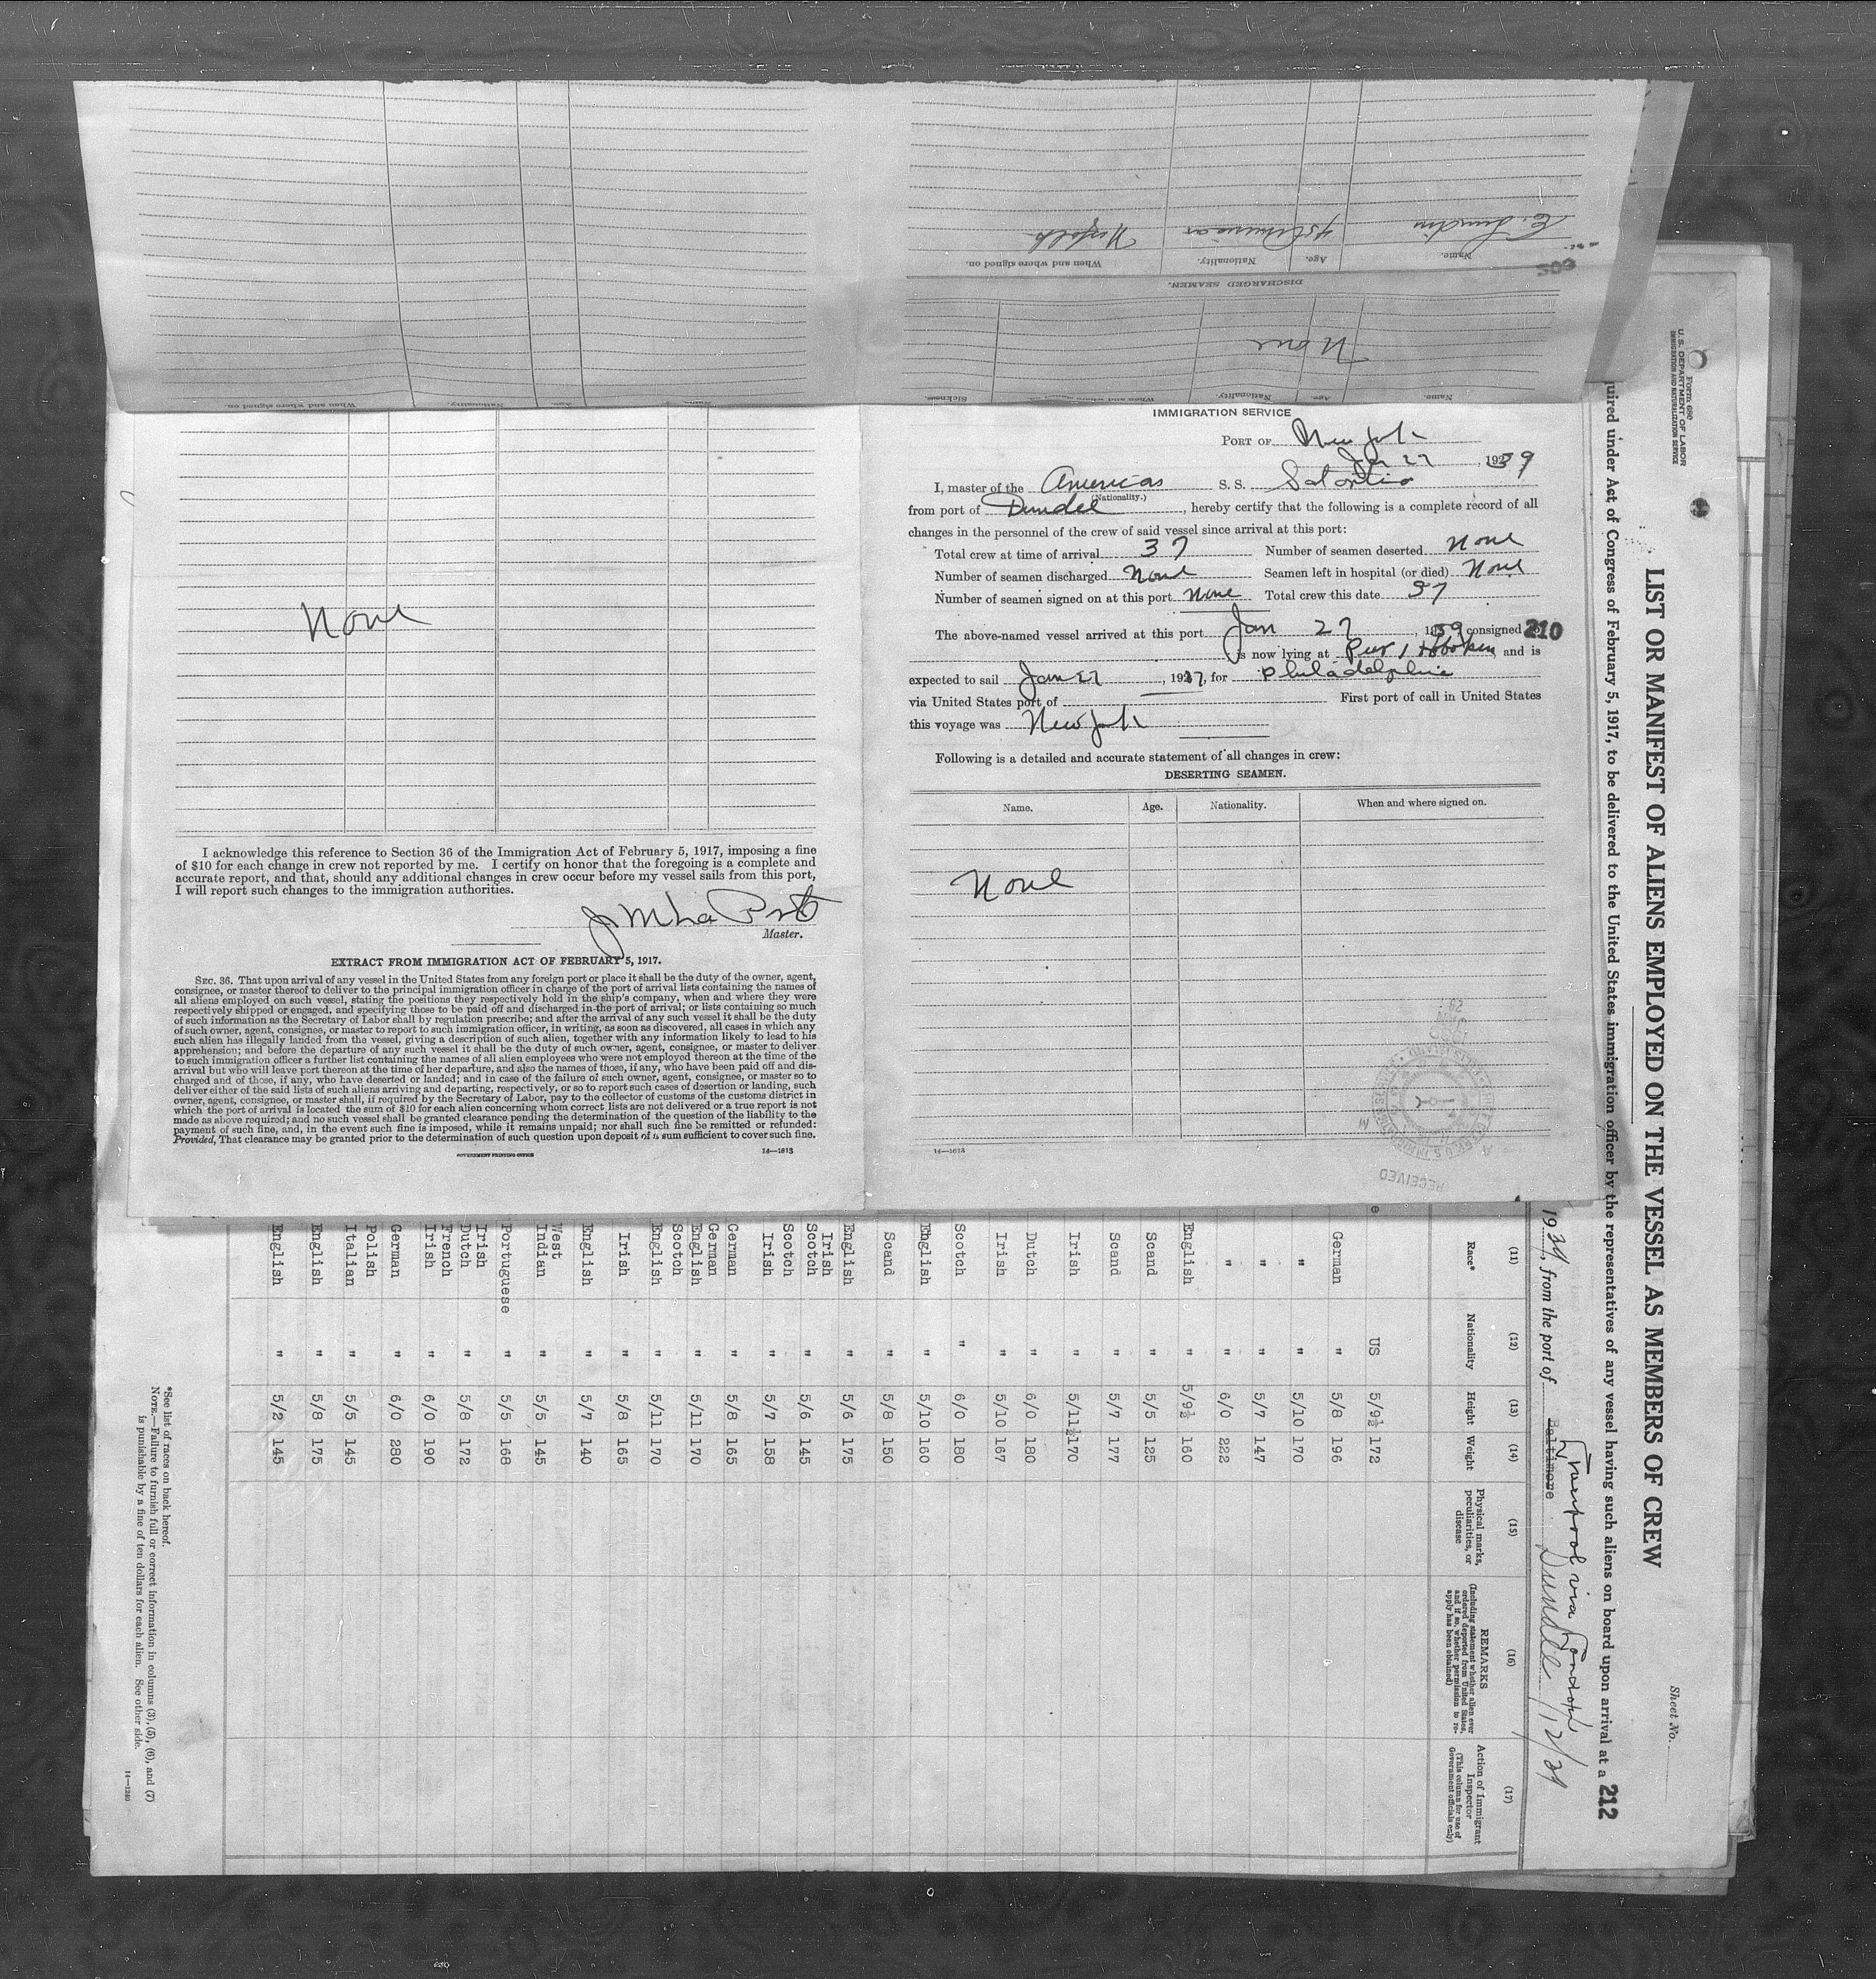 Name. Age. Nationality. When and where signed on.
Norfolk
DISCHARGED SEAMEN.
None
Name. Age. Nationality. When and where signed on. Sickness.
Name. Age. Nationality. When and where signed on.
None
I acknowledge this reference to Section 36 of the Immigration Act of February 5, 1917, imposing a fine
of $10 for each change in crew not reported by me. I certify on honor that the foregoing is a complete and
accurate report, and that, should any additional changes in crew occur before my vessel sails from this port,
I will report such changes to the immigration authorities.
Master.
EXTRACT FROM IMMIGRATION ACT OF FEBRUARY 5, 1917.
SEC. 36. That upon arrival of any vessel in the United States from any foreign port or place it shall be the duty of the owner, agent,
consignee, or master thereof to deliver to the principal immigration officer in charge of the port of arrival lists containing the names of
all aliens employed on such vessel, stating the positions they respectively hold in the ship's company, when and where they were
respectively shipped or engaged, and specifying those to be paid off and discharged in the port of arrival; or lists containing so much
of such information as the Secretary of Labor shall by regulation prescribe; and after the arrival of any such vessel it shall be the duty
of such owner, agent, consignee, or master to report to such immigration officer, in writing, as soon as discovered, all cases in which any
such alien has illegally landed from the vessel, giving a description of such alien, together with any information likely to lead to his
apprehension; and before the departure of any such vessel it shall be the duty of such owner, agent, consignee, or master to deliver
to such immigration officer a further list containing the names of all alien employees who were not employed thereon at the time of the
arrival but who will leave port thereon at the time of her departure, and also the names of those, if any, who have been paid off and dis-
charged and of those, if any, who have deserted or landed; and in case of the failure of such owner, agent, consignee, or master so to
deliver either of the said lists of such aliens arriving and departing, respectively, or so to report such cases of desertion or landing, such
owner, agent, consignee, or master shall, if required by the Secretary of Labor, pay to the collector of customs of the customs district in
which the port of arrival is located the sum of $10 for each alien concerning whom correct lists are not delivered or a true report is not
made as above required; and no such vessel shall be granted clearance pending the determination of the question of the liability to the
payment of such fine, and, in the event such fine is imposed, while it remains unpaid; nor shall such fine be remitted or refunded:
Provided, That clearance may be granted prior to the determination of such question upon deposit of a sum sufficient to cover such fine.
GOVERNMENT PRINTING OFFICE 14—1613
IMMIGRATION SERVICE
PORT OF New York
Jan 27, 1939
I, master of the American S. S.
(Nationality.)
from port of Dundee, hereby certify that the following is a complete record of all
changes in the personnel of the crew of said vessel since arrival at this port:
Total crew at time of arrival 37 Number of seamen deserted None
Number of seamen discharged None Seamen left in hospital (or died) None
Number of seamen signed on at this port None Total crew this date 37
The above-named vessel arrived at this port Jan 27, 1939 consigned to
210
is now lying at Pier 1 Hoboken and is
expected to sail Jan 27, 1937, for Philadelphia
via United States port of First port of call in United States
this voyage was New York
Following is a detailed and accurate statement of all changes in crew:
DESERTING SEAMEN.
Name. Age. Nationality. When and where signed on.
None
14—1613
RECEIVED
Form 680
U. S. DEPARTMENT OF LABOR
IMMIGRATION AND NATURALIZATION SERVICE
Sheet No.
LIST OR MANIFEST OF ALIENS EMPLOYED ON THE VESSEL AS MEMBERS OF CREW
uired under Act of Congress of February 5, 1917, to be delivered to the United States immigration officer by the representatives of any vessel having such aliens on board upon arrival at a
212
Liverpool via London
1939, from the port of Baltimore Dundee 1/12/39
(11) (12) (13) (14) (15) (16) (17)
Race* Nationality Height Weight Physical marks, peculiarities, or disease REMARKS (Including statement whether alien ever ordered deported from United States, and if so, whether permission to re-apply has been obtained) Action of Immigrant Inspector (This column for use of Government officials only)
US 5/9½ 172
German " 5/8 196
" " 5/10 170
" " 5/7 147
" " 6/0 222
English " 5/9½ 160
Scand " 5/5 125
Scand " 5/7 177
Irish " 5/11½ 170
Dutch " 6/0 180
Irish " 5/10 167
Scotch " 6/0 180
English " 5/10 160
Scand " 5/8 150
English " 5/6 175
Irish
Scotch " 5/6 145
Scotch
Irish " 5/7 158
German " 5/8 165
German
English " 5/11 170
Scotch
English " 5/11 170
Irish " 5/8 165
English " 5/7 140
West
Indian " 5/5 145
Portuguese " 5/5 168
Irish
Dutch " 5/8 172
French
Irish " 6/0 190
German " 6/0 280
Polish
Italian " 5/5 145
English " 5/8 175
English " 5/2 145
*See list of races on back hereof.
NOTE.—Failure to furnish full or correct information in columns (3), (5), (6), and (7)
is punishable by a fine of ten dollars for each alien. See other side.
14—1280